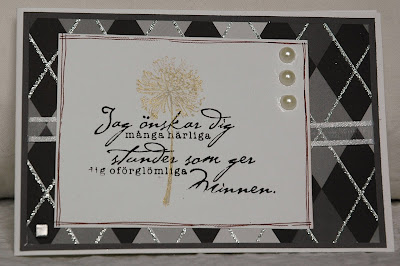 Jag önskar dig
många härliga
stunder som ger
dig oförglömliga
Minnen.